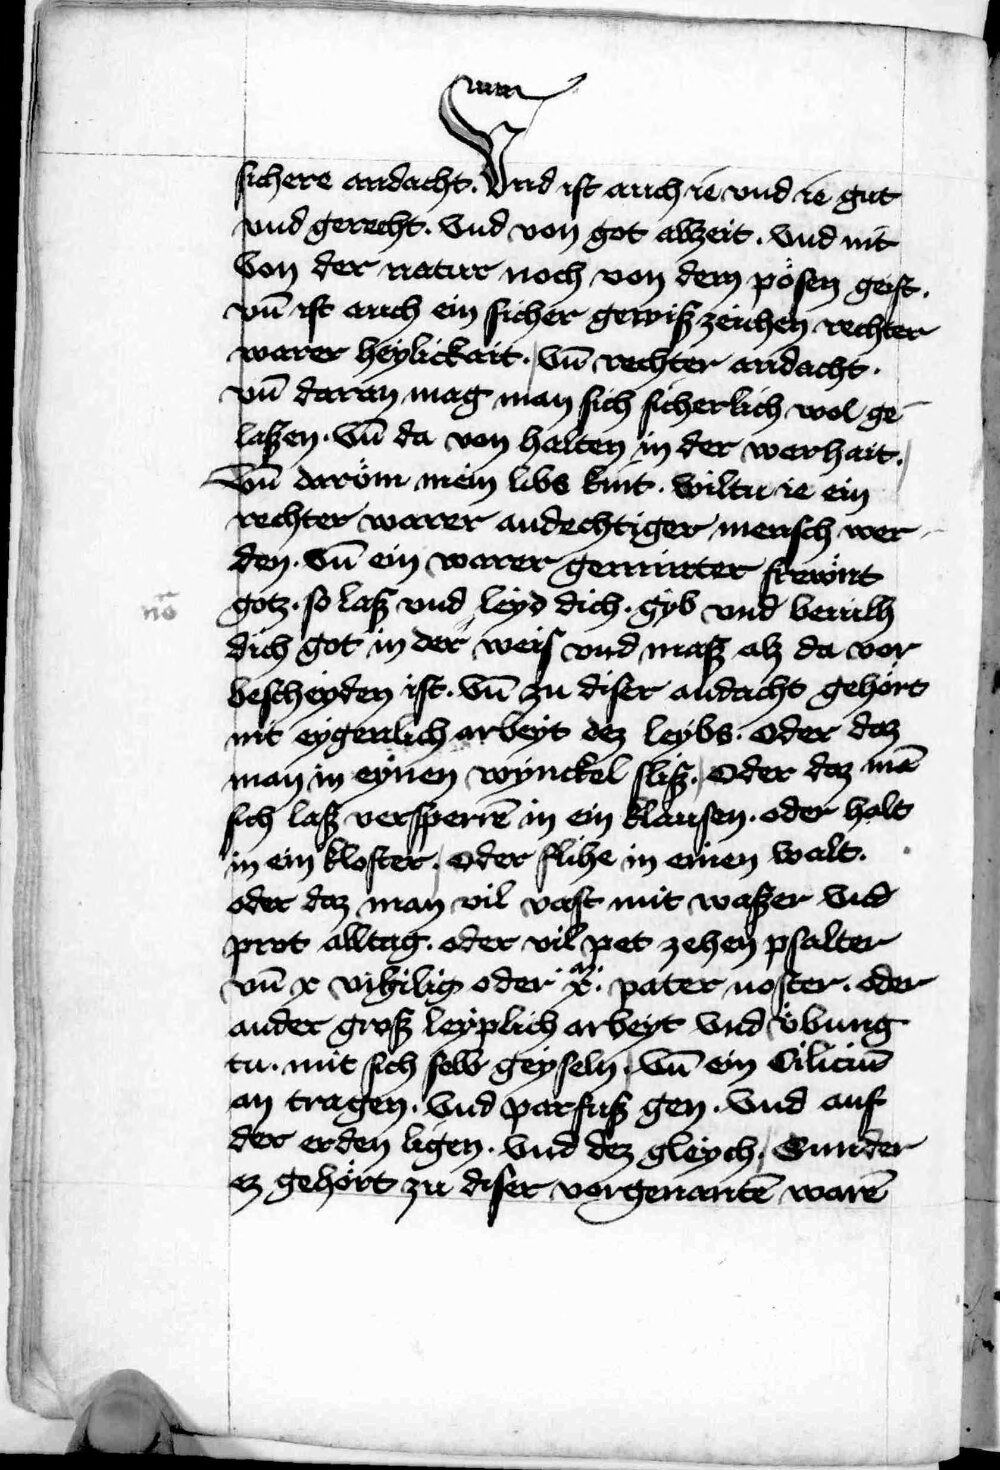 sichere andacht. Vnd ist auch ie vnd ie gut
vnd gerecht. Vnd von got allzeit. Vnd nit
Von der natur noch von dem pösen geist.
vn̄ ist auch ein sicher gewiß zeichen rechter
warer heylickait. Vn̄ rechter andacht.
vn̄ daran mag man sich sicherlich wol ge
laßen. Vn̄ da von halten in der warhait.
Vn̄ daröm mein libs kint. Wiltu ie ein
rechter warer andechtiger mensch wer
den. Vn̄ ein warer geminter frewnt
nō
gotz. so laß vnd leyd dich. gyb vnd beuilh
dich got in der weis vnd maß alz da vor
bescheyden ist. Vn̄ zu diser andacht gehört
nit eygenlich arbeyt dez leybs. Oder daz
man in eynen wynckel sliff. Oder daz mā
sich laß versperrē in ein klausen. oder halt
in ein kloster. Oder flihe in einen walt.
oder daz man vil vast mit waßer Vnd
prot alltag. oder vil pet zehen psalter
vn̄ x vikilig oder .xͫ. pater noster. oder
ander groß leyplich arbeyt vnd öbung
tu. mit sich selb geyseln. Vn̄ ein Ciliciū
an tragen. Vnd parfuß gen. Vnd auf
der erden ligen. Vnd dez gleych. Sunder
ez gehört zu diser vorgenantē warē